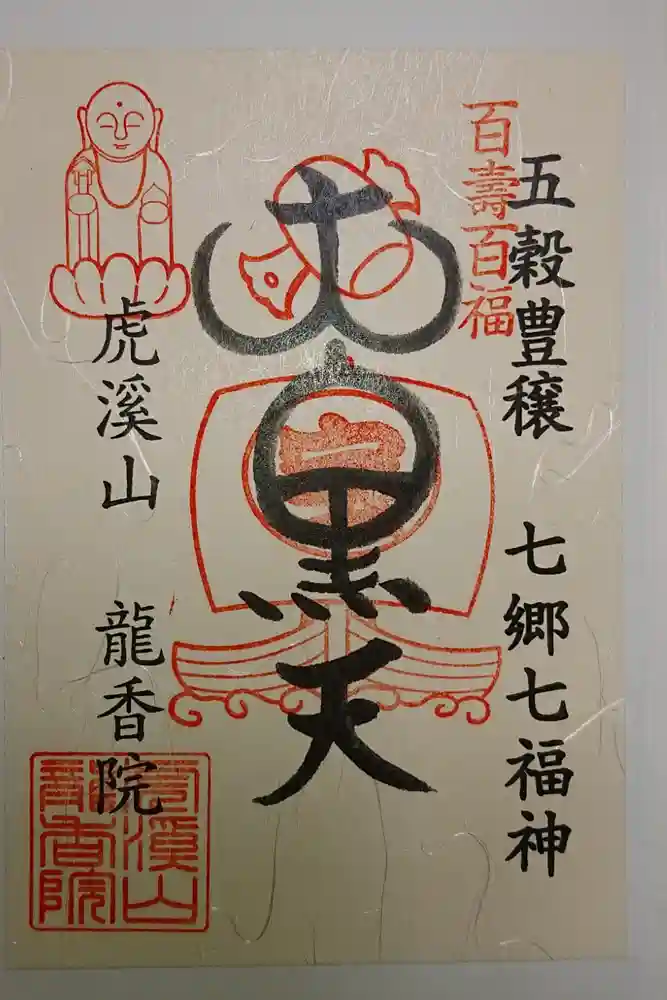 百壽百福
五穀豊穣 七郷七福神
大黒天
虎溪山 龍香院
虎溪山
龍香院